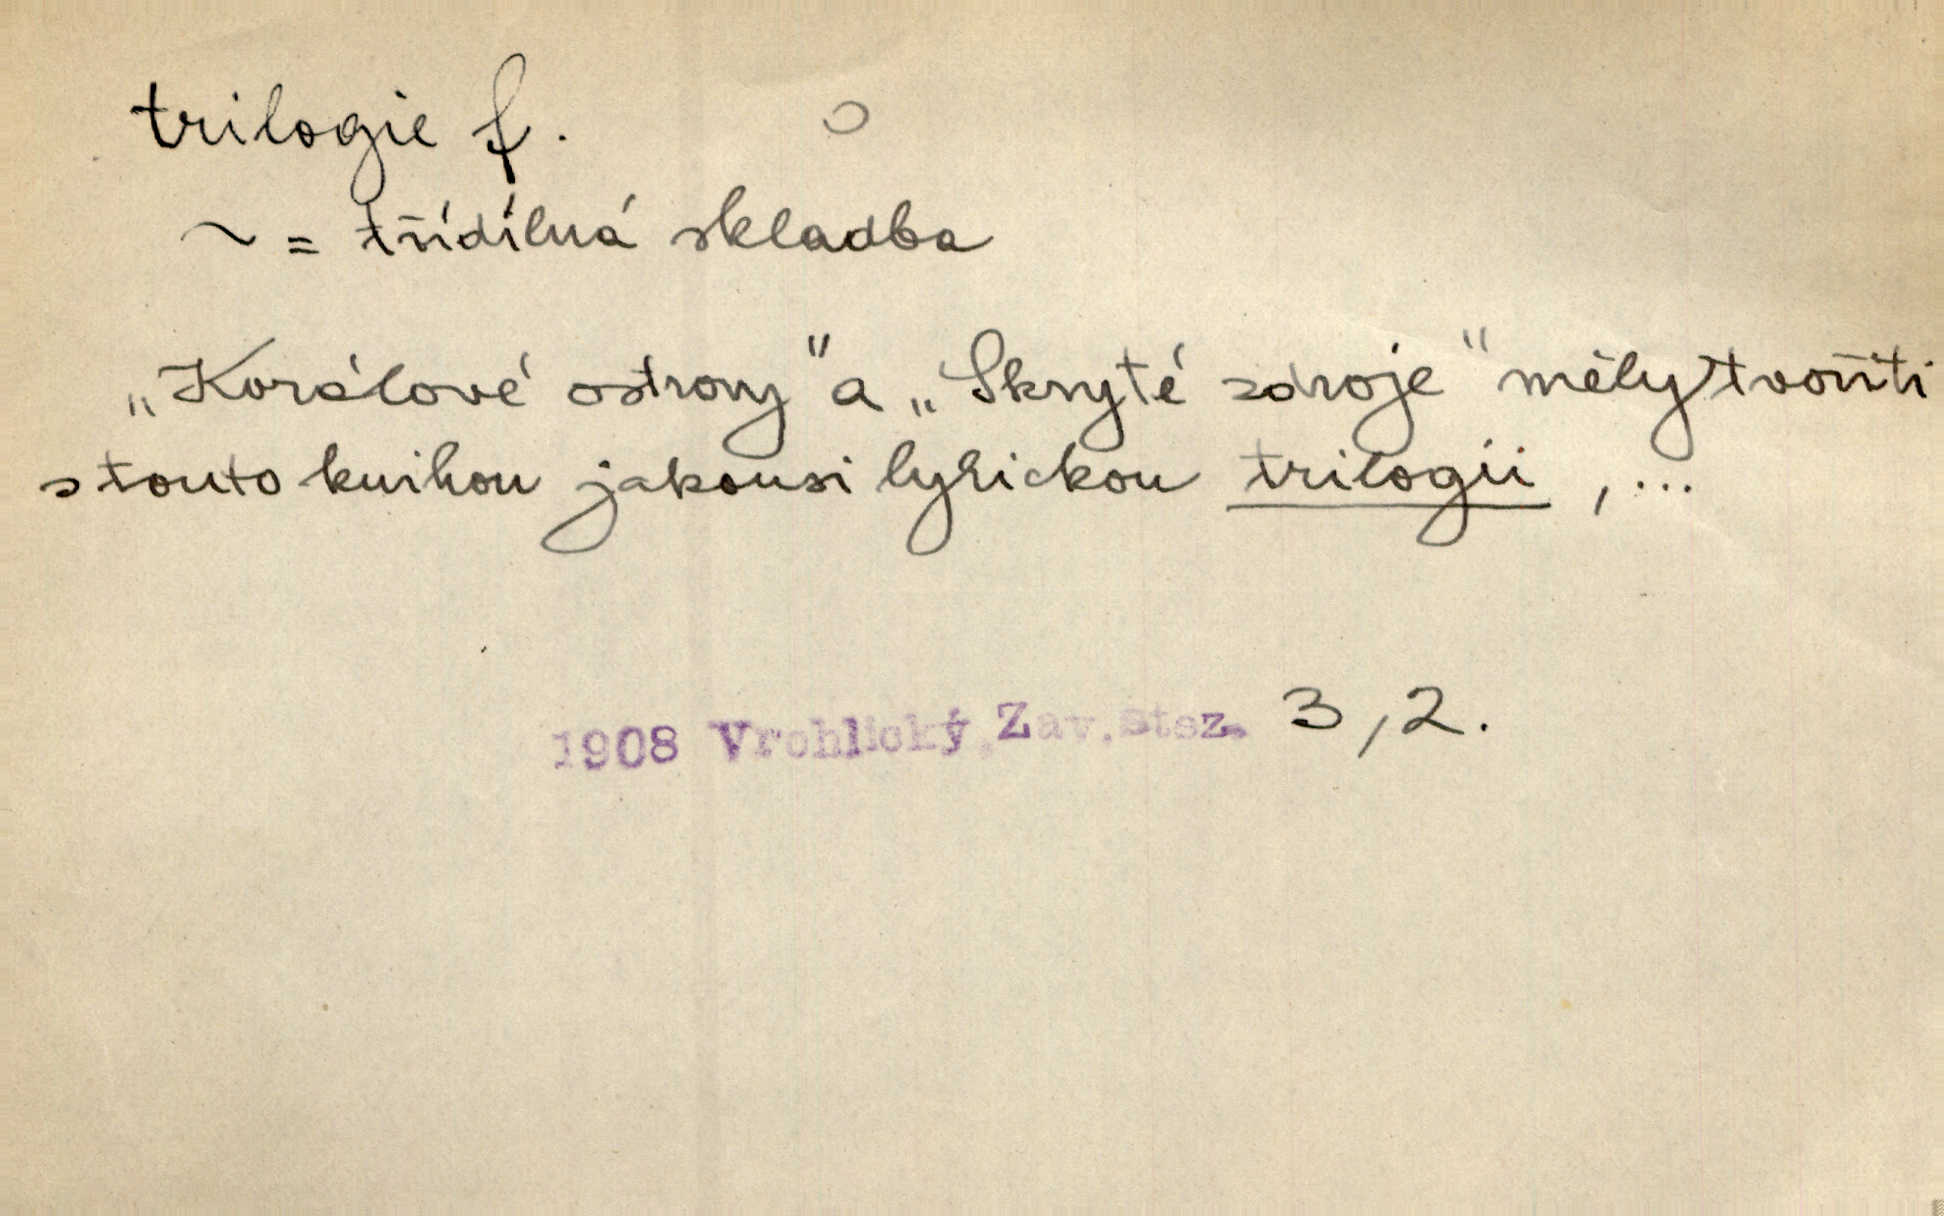 trilogie f.
~ = třídílná skladba
„Korálové ostrovy" a „Skryté zdroje" měly tvořiti
s touto knihou jakousi lyrickou trilogii, ...
1908 Vrchlický, Zav. stsz. 3,2.